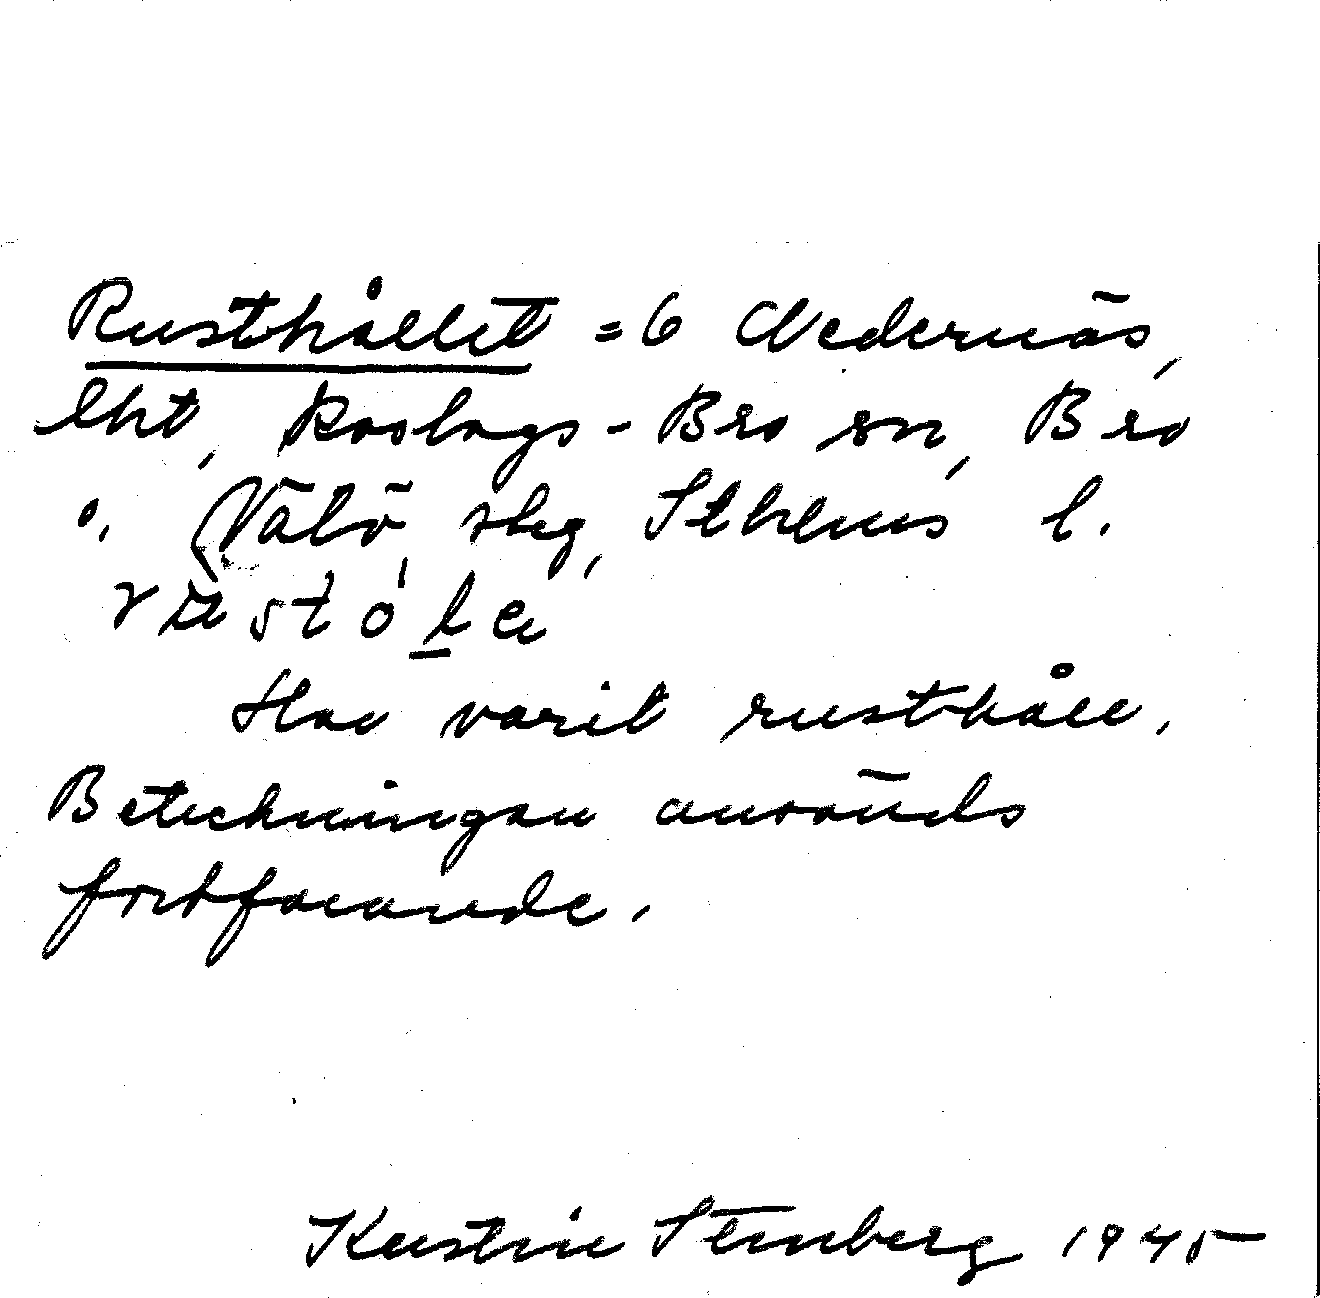 Rusthållet = 6 Nedernäs,
lht, Roslags-Bro sn, Bro
o. Vätö skg, Sthlms l.
Har varit rusthåll.
Beteckningen används
fortfarande.
Kerstin Stenberg 1945